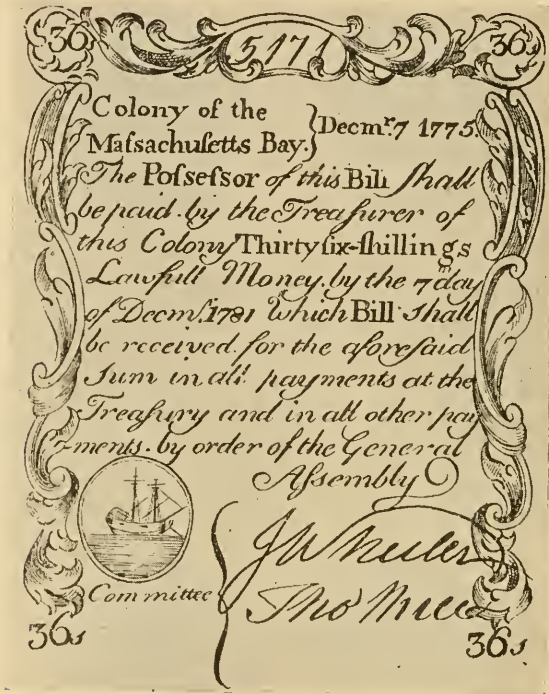 36 5171 36s
Colony of the
Maſsachuſetts Bay. } Decmr. 7 1775
The Poſseſsor of this Bill ſhall
be paid. by the Treaſurer of
this Colony Thirty ſix-ſhillings
Lawfull Money. by the 7 day
of Decmr. 1781 Which Bill ſhall
be received. for the aforeſaid
Sum in all payments at the
Treaſury and in all other pay
-ments. by order of the General
Aſsembly
J Wheeler
Committee Tho
36s 36s